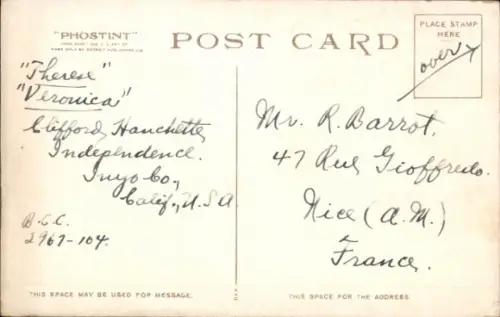 "PHOSTINT"
POST CARD
PLACE STAMP
HERE
over
"Therese"
"Veronica"
Clifford Hanchette
Independence.
Inyo Co.,
Calif., U.S.A
B.C.C.
2967-104.
Mr. R. Barrot.
47 Rue Gioffredo.
Nice (A.M.)
France.
THIS SPACE MAY BE USED FOR MESSAGE.
THIS SPACE FOR THE ADDRESS